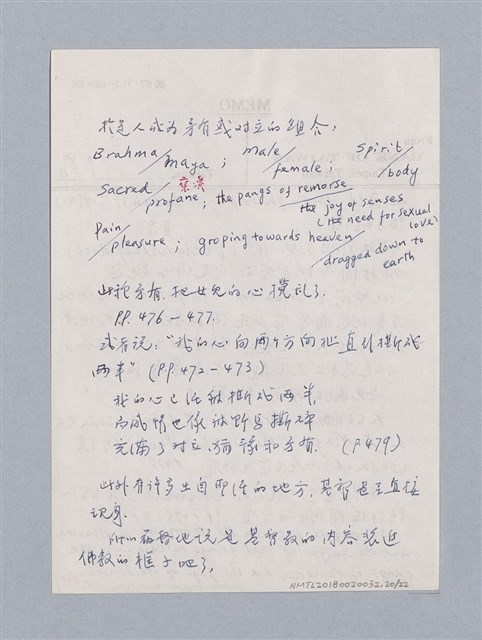 於是人成為矛盾或對立的組合:
Brahma/maya; male/female; spirit/body
Sacred/profane; the pangs of remorse/the joy of senses
褻瀆
(the need for sexual love)
Pain/pleasure; groping towards heaven/dragged down to earth
此種矛盾把女兒的心攪亂了.
P.P. 476－477.
或者說:"我的心向兩个方向拉直到撕成
兩半"(P.P. 472－473)
我的心已經被撕成兩半,
充滿了對立、猶豫和矛盾. (P.479)
此外有許多出自聖經的地方,基督甚至直接
現身.
地說是基督教的內容裝進
佛教的框子吧了.
NMTL20180020032.20/22
MEMO